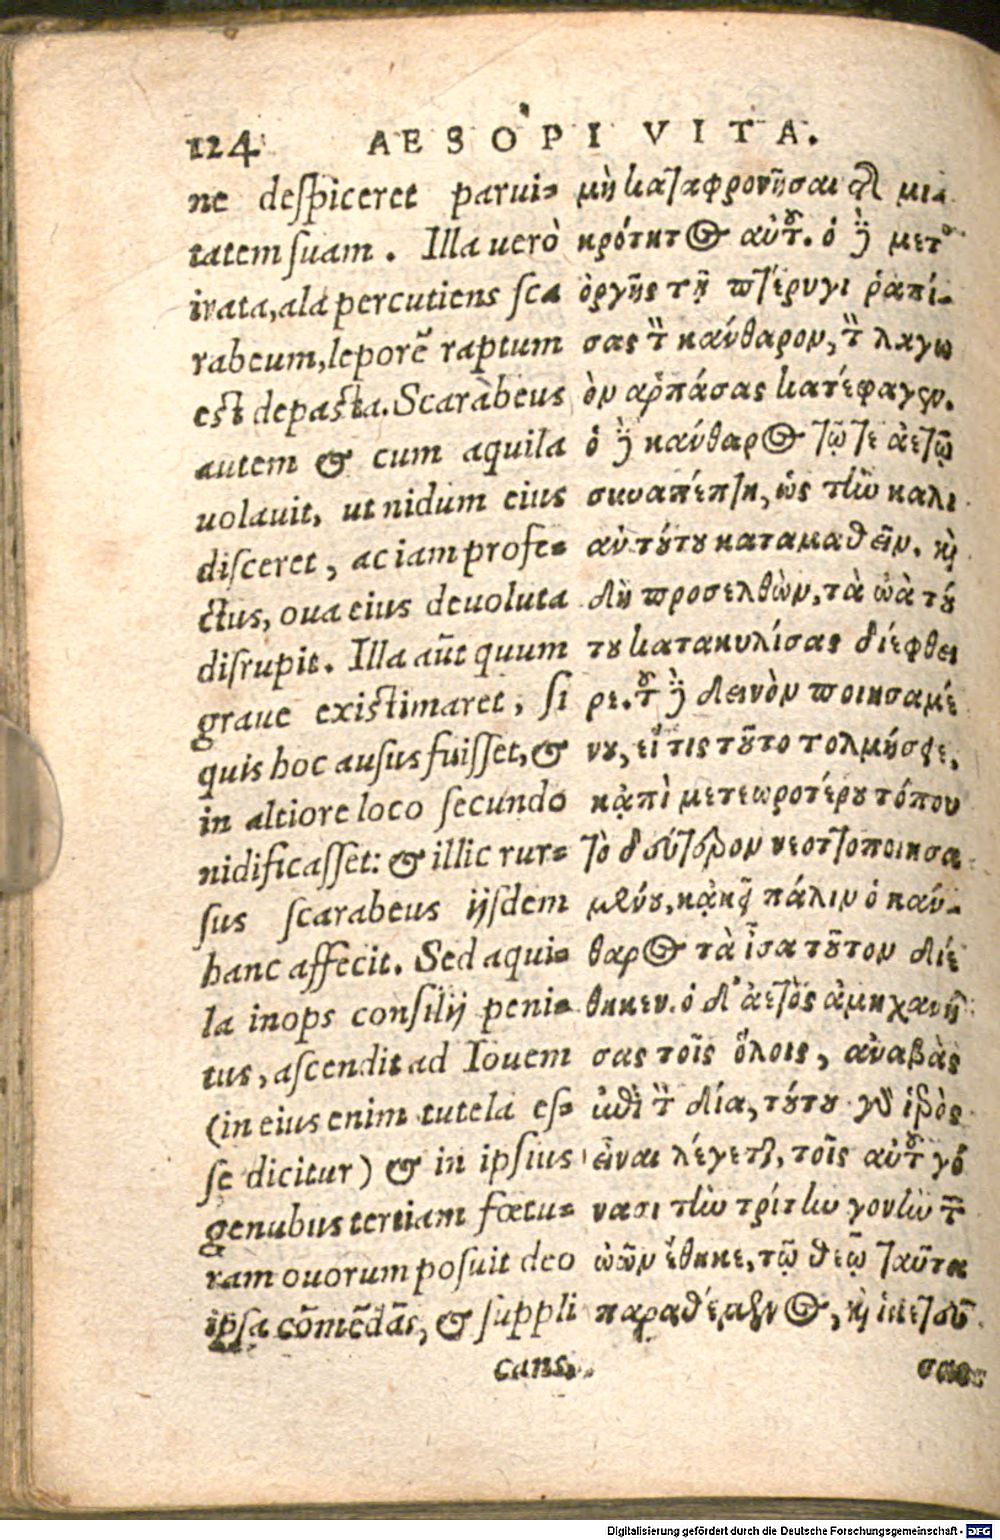 124 AESOPI VITA.
ne despiceret parui-
tatem suam. Illa uerò
irata, ala percutiens sca
rabeum, leporē raptum
est depasta. Scarabeus
autem & cum aquila
uolauit, ut nidum eius
disceret, ac iam profe-
ctus, oua eius deuoluta
disrupit. Illa aūt quum
graue existimaret, si
quis hoc ausus fuisset, &
in altiore loco secundo
nidificasset: & illic rur-
sus scarabeus ijsdem
hanc affecit. Sed aqui-
la inops consilij peni-
tus, ascendit ad Iouem
(in eius enim tutela es-
se dicitur) & in ipsius
genubus tertiam fœtu-
ram ouorum posuit deo
ipsa cōmēdās, & suppli
cans,
μὴ καταφρονῆσαι τῆς μι-
κρότητος αὐτοῦ. ὁ δὲ μετ᾽
ὀργῆς τῇ πτέρυγι ῥαπί-
σας τὸν κάνθαρον, τὸν λαγω
ὸν ἁρπάσας κατέφαγεν.
ὁ δὲ κάνθαρος τῷ τε ἀετῷ
συναπέπτη, ὡς τὴν καλι
ὰν τούτου καταμαθεῖν. καὶ
δὴ προσελθὼν, τὰ ὠὰ τού
του κατακυλίσας διέφθει
ρε. τοῦ δὲ δεινὸν ποιησαμέ
νου, εἴ τις τοῦτο τολμήσειε,
κἀπὶ μετεωροτέρου τόπου
τὸ δεύτερον νεοττοποιησα
μένου, κἀκεῖ πάλιν ὁ κάν-
θαρος τὰ ἴσα τοῦτον διέ
θηκεν. ὁ δ᾽ ἀετὸς ἀμηχανή
σας τοῖς ὅλοις, ἀναβὰς
ἐπὶ τὸν Δία, τούτου γὰρ ἱερὸς
εἶναι λέγεται, τοῖς αὐτοῦ γό
νασι τὴν τρίτην γονὴν τῶν
ὠῶν ἔθηκε, τῷ θεῷ ταῦτα
παραθέμενος, καὶ ἱκετεύ
σας
Digitalisierung gefördert durch die Deutsche Forschungsgemeinschaft - DFG